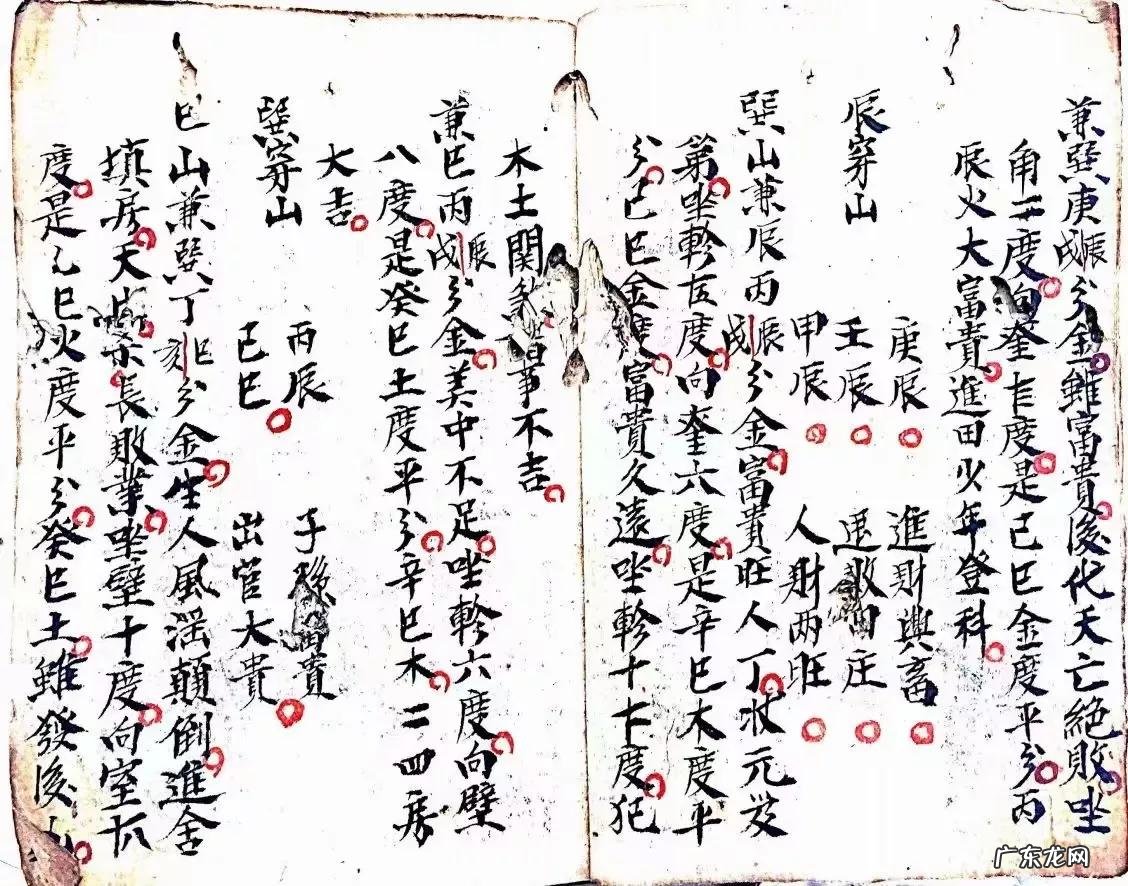 兼巽庚辰戌分金雖富貴後代夭亡絕敗坐
角二度向奎七度是己巳金度平分丙
辰火大富貴進田少年登科
辰穿山
庚辰 進財興畜
壬辰 退敗田庄
甲辰 人財两旺
巽山兼辰丙辰戌分金富貴旺人丁状元及
第坐軫五度向奎六度是辛巳木度平
分己巳金度富貴久遠坐軫十七度犯
木土関煞諸事不吉
兼巳丙辰戌分金美中不足坐軫六度向壁
八度是癸巳土度平分辛巳木二四房
大吉
巽穿山
丙辰 子孫富貴
己巳 出官大貴
巳山兼巽丁巳亥分金生人風淫顛倒進舍
填房天 長敗業坐壁十度向室八
度是乙巳火度平分癸巳土雖發後
广东龙网